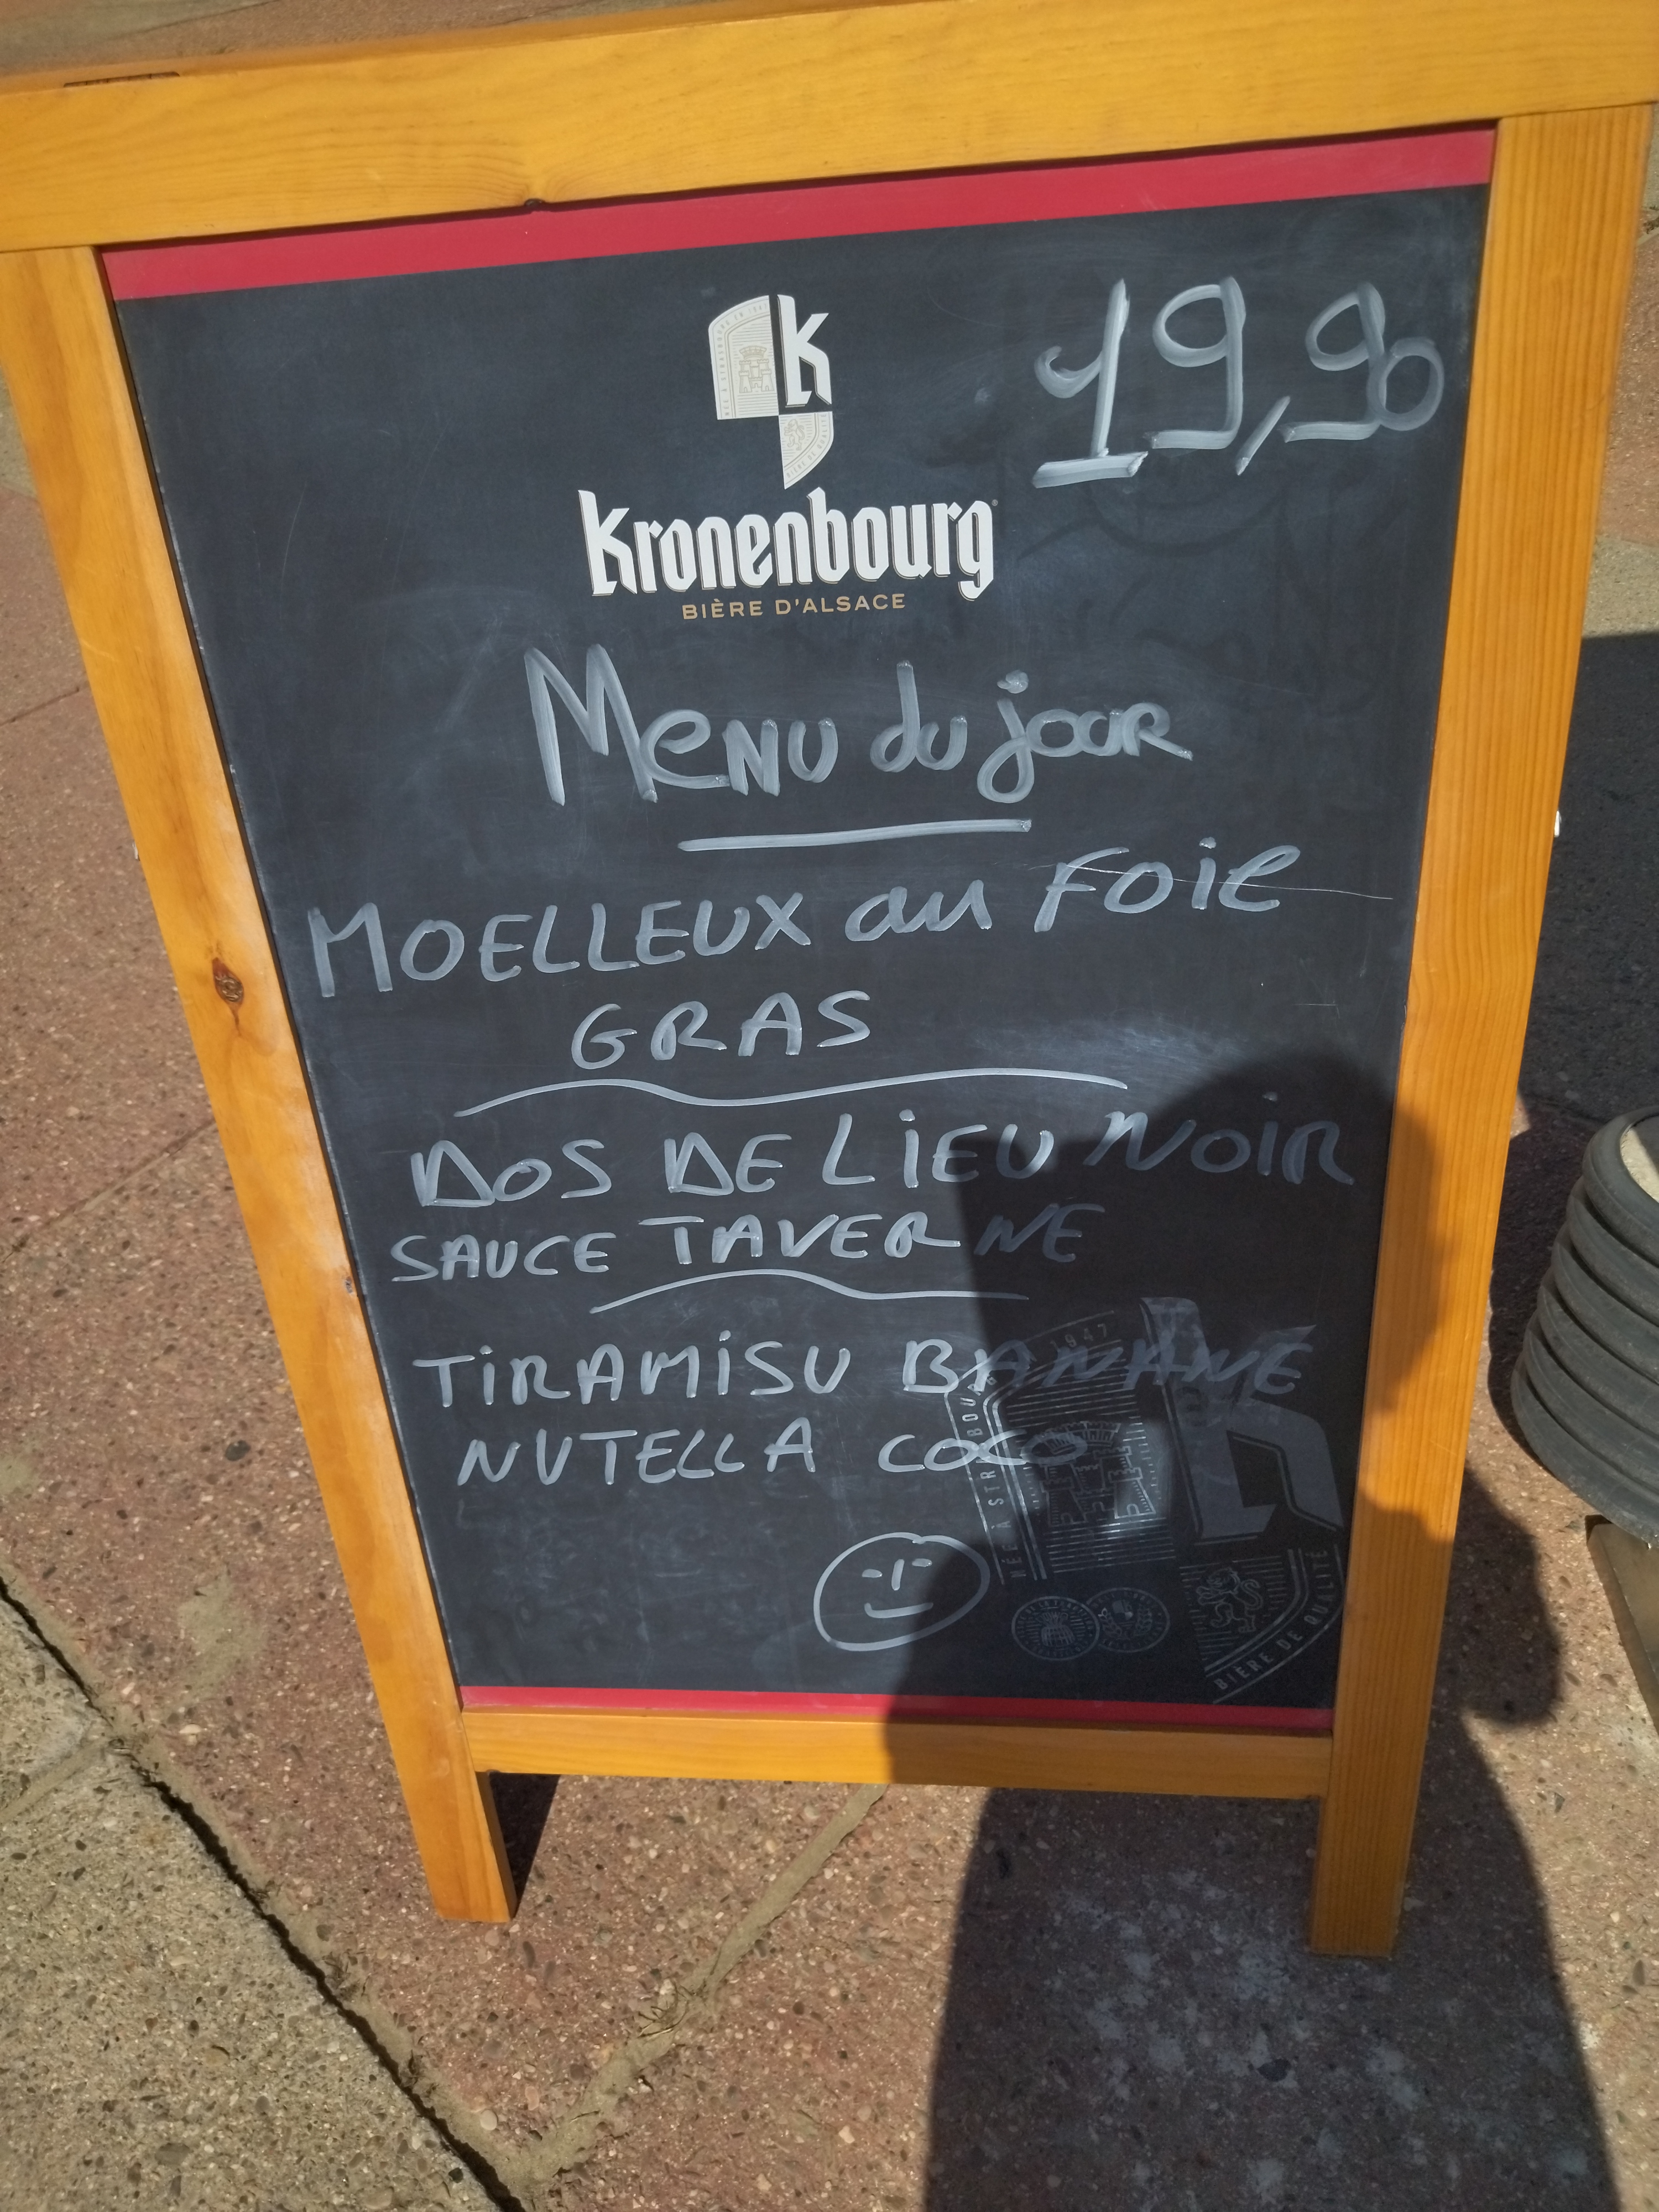 K
19,90
Kronenbourg
BIÈRE D'ALSACE
Menu du jour
MOELLEUX au FOIE
GRAS
DOS DE LIEU NOIR
SAUCE TAVERNE
TIRAMISU BANANE
NUTELLA COCO
1947
K
BIÈRE DE QUALITÉ